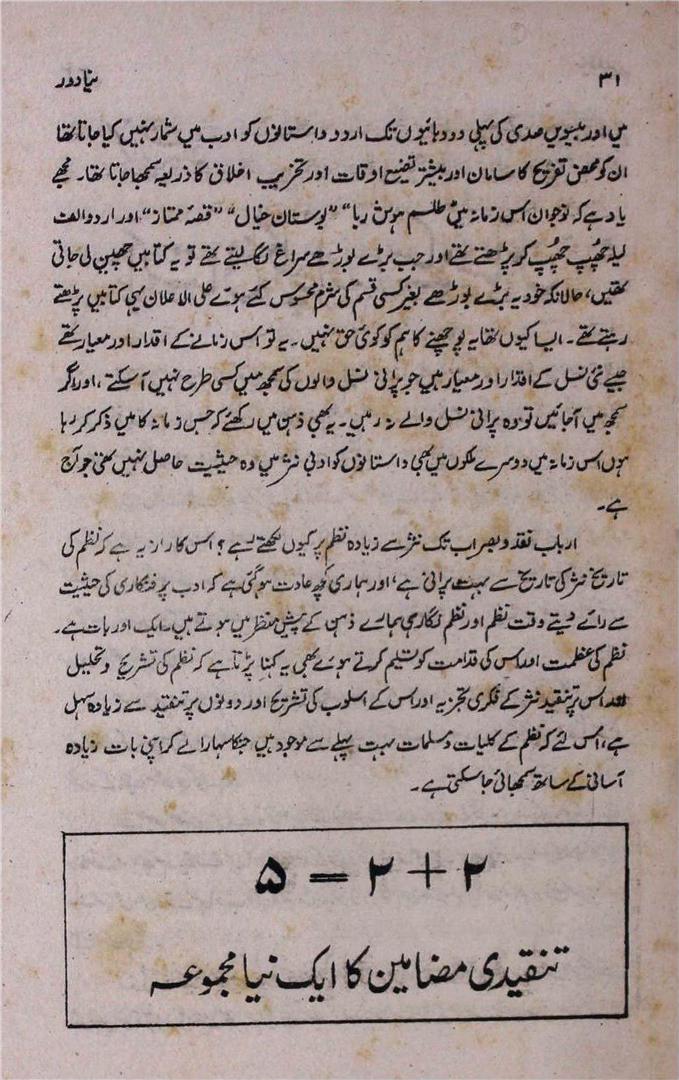 ۳۱ نیا دور
میں اور بیسویں صدی کی پہلی دو دہائیوں تک اردو داستانوں کو ادب میں شمار نہیں کیا جاتا تھا
ان کو محض تفریح کا سامان اور بیشتر تضیع اوقات اور تخریب اخلاق کا ذریعہ سمجھا جاتا تھا۔ مجھے
یاد ہے کہ نوجوان اس زمانہ میں طلسم ہوش ربا" "بوستان خیال" "قصہ ممتاز" اور اردو الف
لیلہ چھپ چھپ کر پڑھتے تھے اور جب بڑے بوڑھے سراغ لگا لیتے تھے تو یہ کتابیں چھین لی جاتی
تھیں، حالانکہ خود یہ بڑے بوڑھے بغیر کسی قسم کی شرم محسوس کئے ہوئے علی الاعلان یہی کتابیں پڑھتے
رہتے تھے۔ ایسا کیوں تھا یہ پوچھنے کا ہم کو کوئی حق نہیں۔ یہ تو اس زمانے کے اقدار اور معیار تھے
جیسے نئی نسل کے اقدار اور معیار ہیں جو پرانی نسل والوں کی سمجھ میں کسی طرح نہیں آ سکتے، اور اگر
سمجھ میں آ جائیں تو وہ پرانی نسل والے نہ رہیں۔ یہ بھی ذہن میں رکھئے کہ جس زمانہ کا میں ذکر کر رہا
ہوں اس زمانہ میں دوسرے ملکوں میں بھی داستانوں کو ادبی نثر میں وہ حیثیت حاصل نہیں تھی جو آج
ہے۔
ارباب نقد و بصر اب تک نثر سے زیادہ نظم پر کیوں لکھتے رہے؟ اس کا راز یہ ہے کہ نظم کی
تاریخ نثر کی تاریخ سے بہت پرانی ہے، اور ہماری کچھ عادت ہو گئی ہے کہ ادب پر فنکاری کی حیثیت
سے رائے دیتے وقت نظم اور نظم نگار ہی ہمارے ذہن کے پیش منظر میں ہوتے ہیں۔ ایک اور بات ہے۔
نظم کی عظمت اور اس کی قدامت کو تسلیم کرتے ہوئے بھی یہ کہنا پڑتا ہے کہ نظم کی تشریح و تحلیل
اور اس پر تنقید نثر کے فکری تجزیہ اور اس کے اسلوب کی تشریح اور دونوں پر تنقید سے زیادہ سہل
ہے، اس لئے کہ نظم کے کلیات و مسلمات بہت پہلے سے موجود ہیں جنکا سہارا لے کر اپنی بات زیادہ
آسانی کے ساتھ سمجھائی جا سکتی ہے۔
۲ + ۲ = ۵
تنقیدی مضامین کا ایک نیا مجموعہ